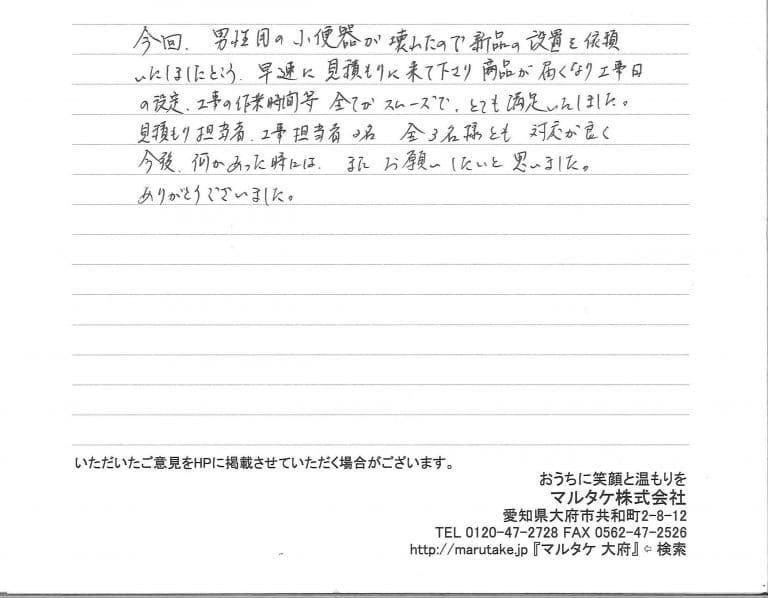 今回、男性用の小便器が壊れたので新品の設置を依頼
いたしましたところ、早速に見積もりに来て下さり商品が届くなり工事日
の設定、工事の作業時間等全てがスムーズで、とても満足いたしました。
見積もり担当者、工事担当者2名 全3名様とも 対応が良く
今後、何かあった時には、またお願いしたいと思いました。
ありがとうございました。
いただいたご意見をHPに掲載させていただく場合がございます。
おうちに笑顔と温もりを
マルタケ株式会社
愛知県大府市共和町2-8-12
TEL 0120-47-2728 FAX 0562-47-2526
http://marutake.jp『マルタケ 大府』⇦ 検索